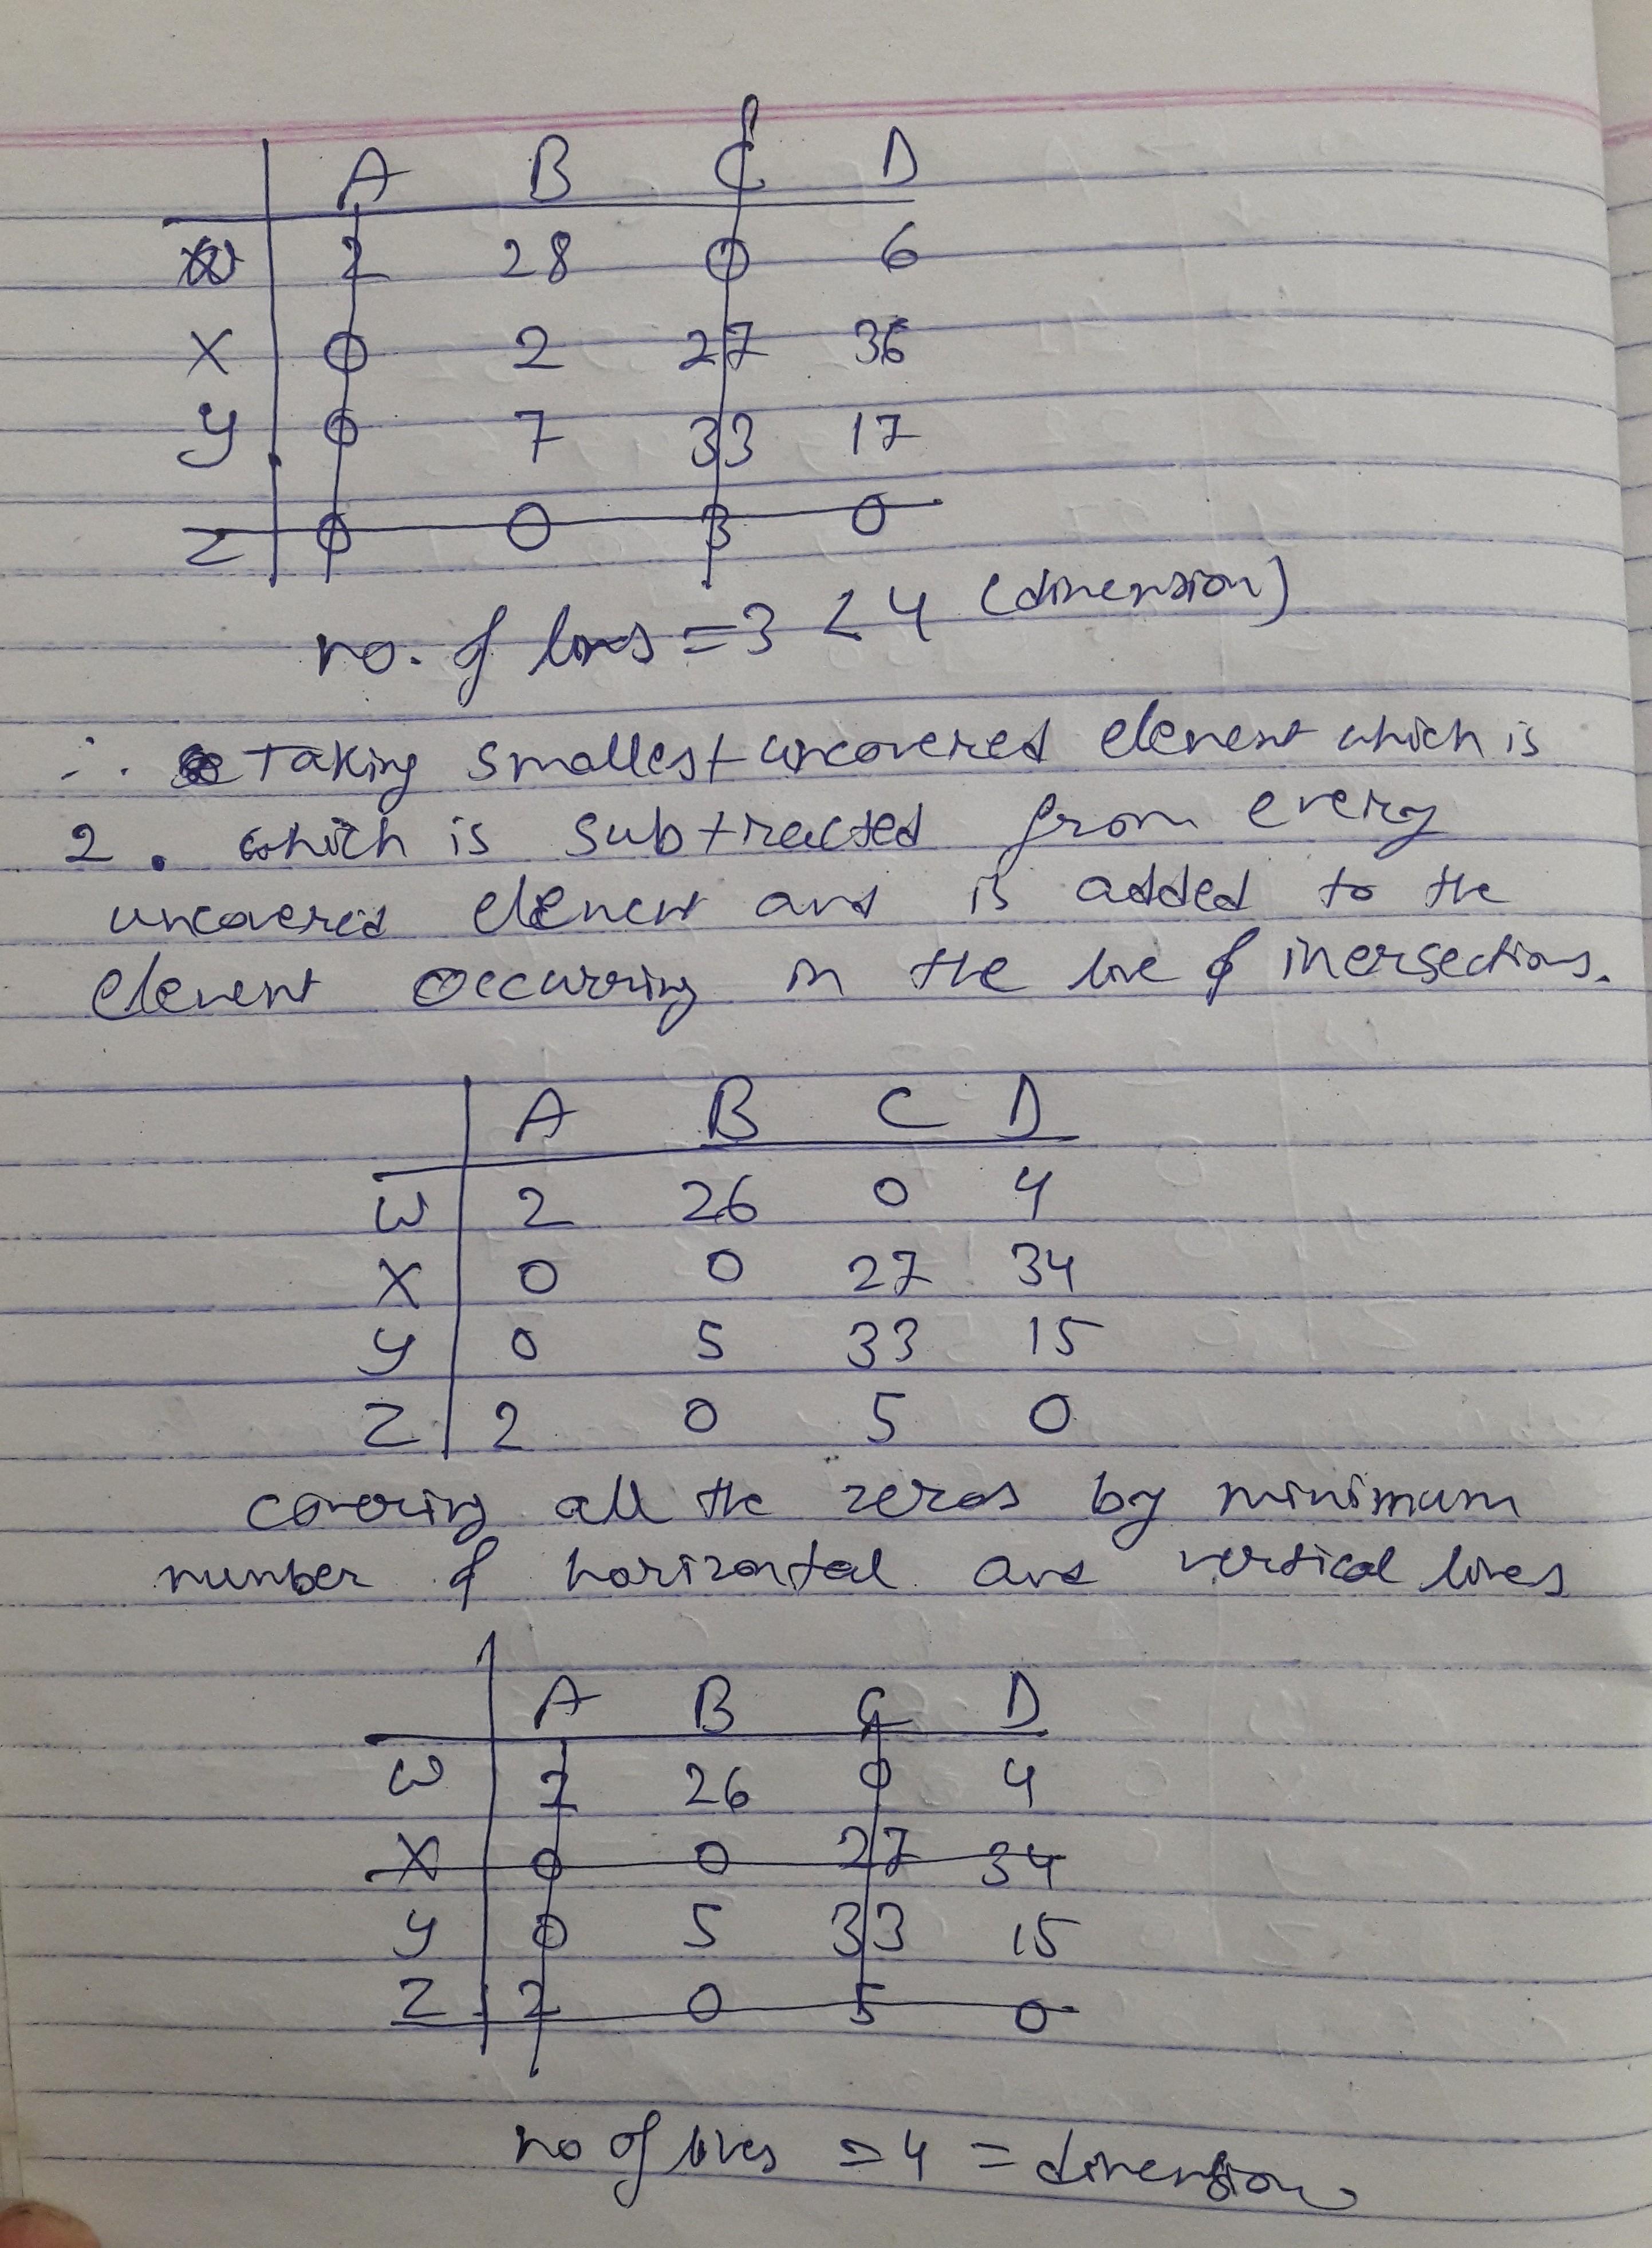 A B C D
W 2 28 0 6
X 0 2 27 36
Y 0 7 33 17
Z 0 0 3 0
no. of lines = 3 < 4 (dimension)
∴ Taking smallest uncovered element which is
2. which is subtracted from every
uncovered element and is added to the
element occurring in the line of inersections.
A B C D
W 2 26 0 4
X 0 0 27 34
Y 0 5 33 15
Z 2 0 5 0
covering all the zeros by minimum
number of horizontal and vertical lines
A B C D
W 2 26 0 4
X 0 0 27 34
Y 0 5 33 15
Z 2 0 5 0
no of lines = 4 = dimension